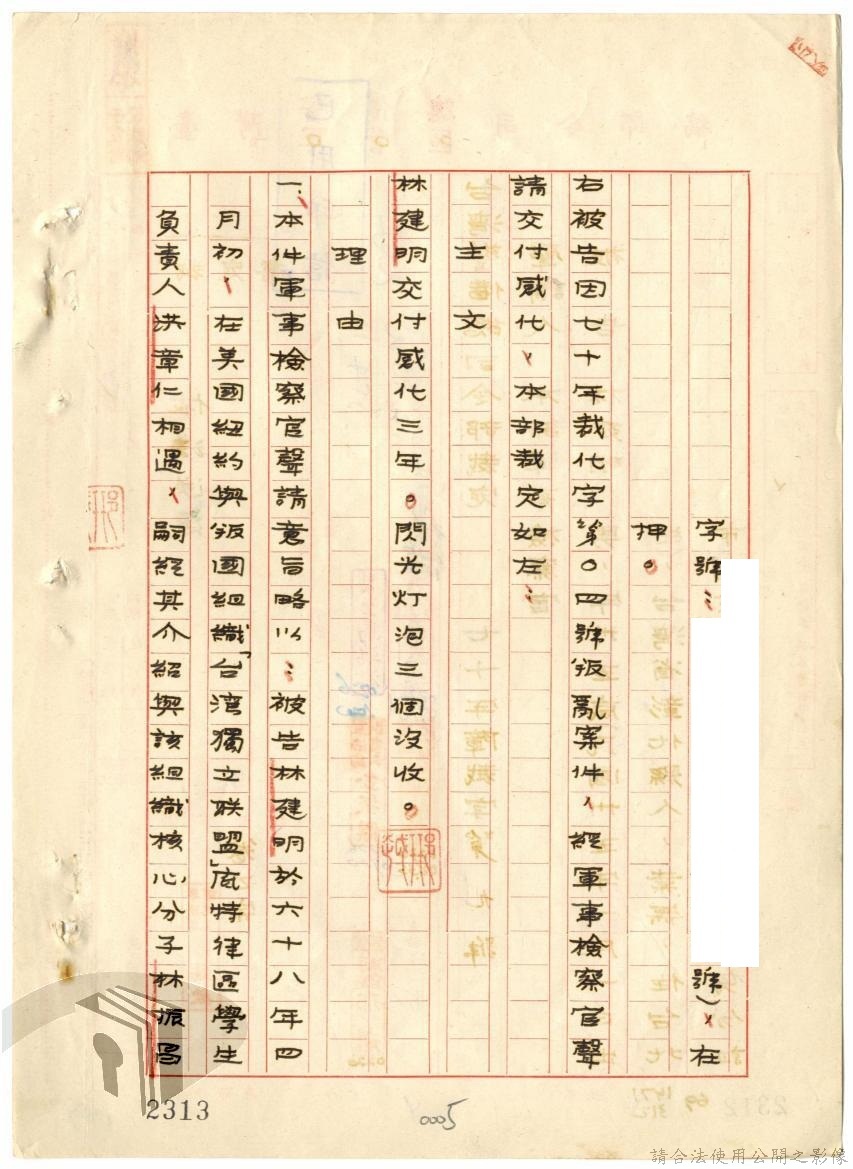 字號：號）、在
押。
右被告因七十年裁化字第〇四號叛亂案件、經軍事檢察官聲
請交付感化、本部裁定如左：
主文
林建明交付感化三年。閃光灯泡三個沒收。
理由
一、本件軍事檢察官聲請意旨略以：被告林建明於六十八年四
月初、在美國紐約與叛國組織「台湾獨立联盟」底特律區學生
負責人洪章仁相遇、嗣經其介紹與該組織核心分子林振昌
2313
0005
請合法使用公開之影像